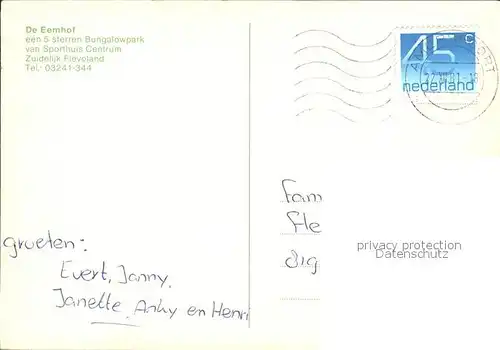 De Eemhof
een 5 sterren Bungalowpark
van Sporthuis Centrum
Zuidelijk Flevoland
Tel.: 03241-344
45 c
nederland
Fam
groeten:
Evert, Janny,
Janette, Anky en Henri
privacy protection
Datenschutz